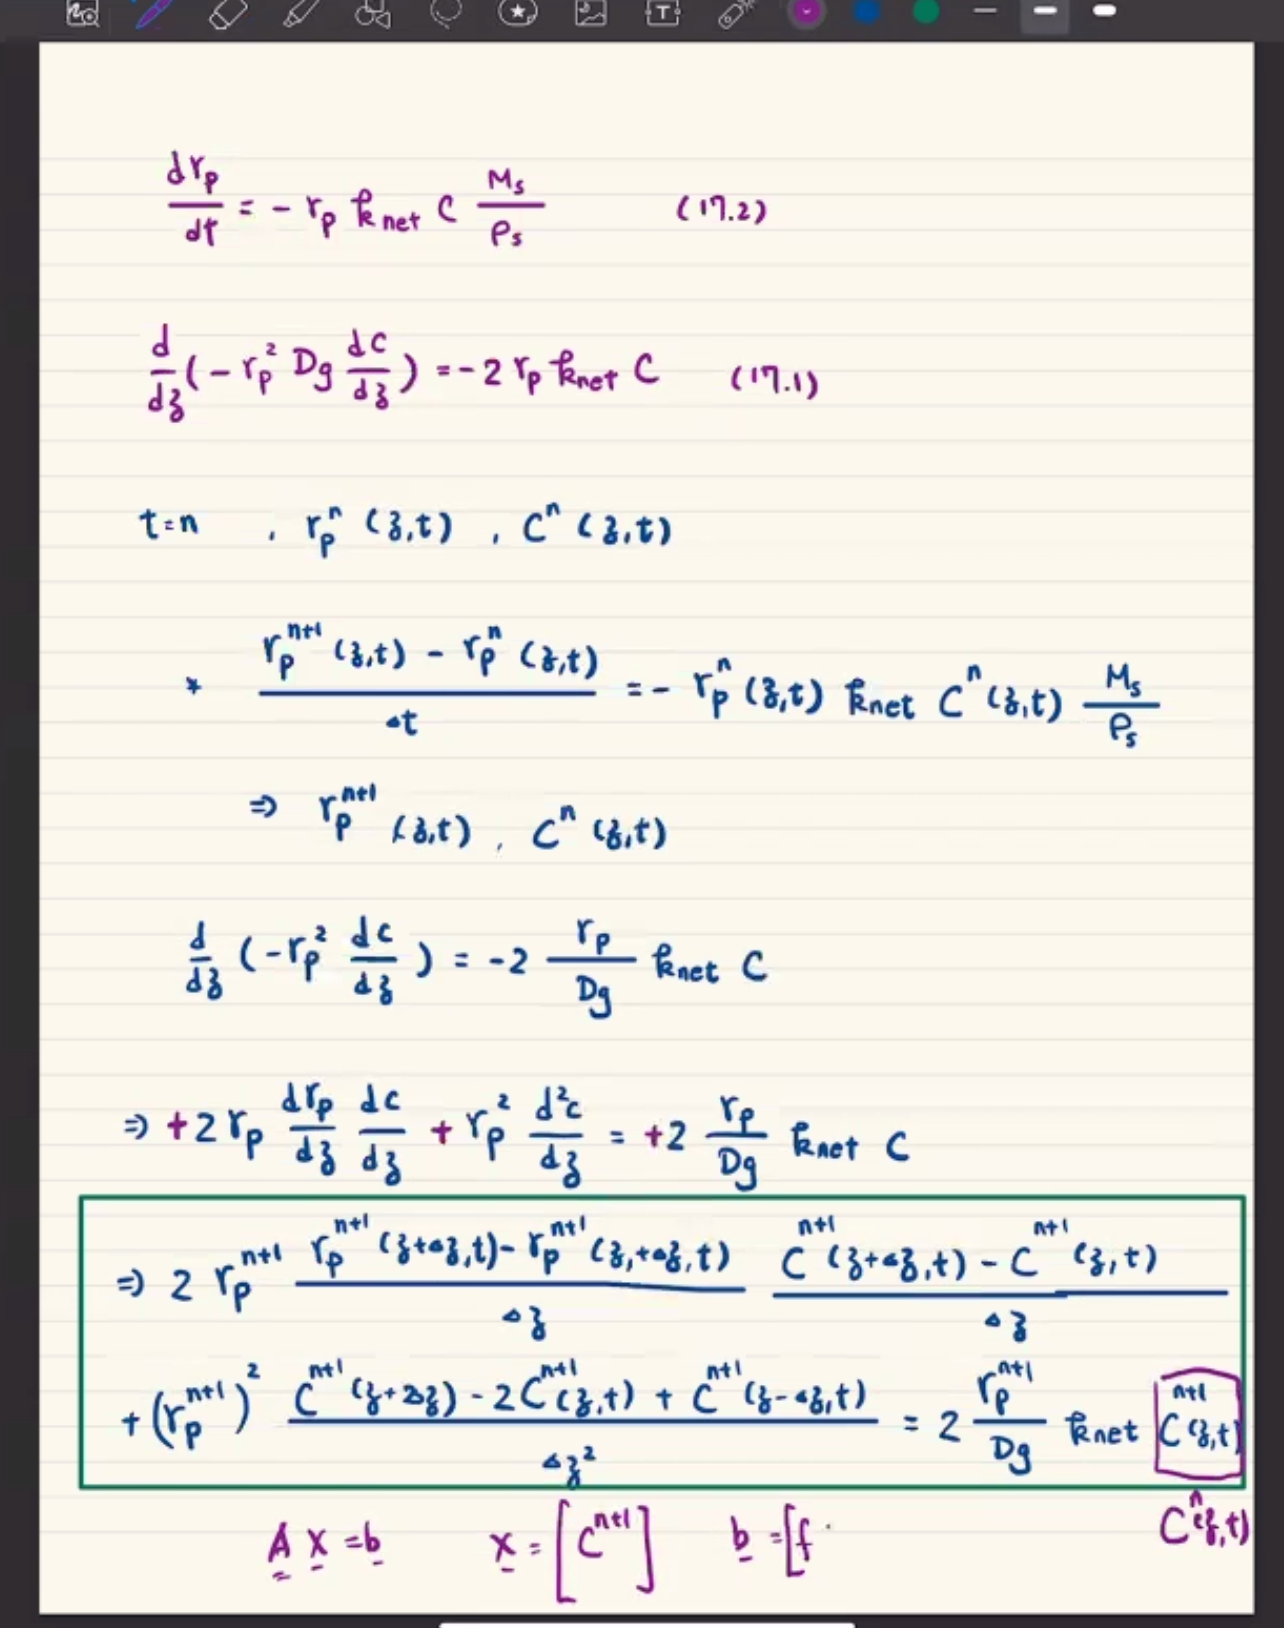 drₚ/dt = - rₚ k_net C Mₛ/ρₛ (17.2)
d/dz (- rₚ² Dg dC/dz) = - 2 rₚ k_net C (17.1)
t=n , rₚⁿ (z,t) , Cⁿ (z,t)
* (rₚⁿ⁺¹ (z,t) - rₚⁿ (z,t))/Δt = - rₚⁿ (z,t) k_net Cⁿ (z,t) Mₛ/ρₛ
⇒ rₚⁿ⁺¹ (z,t) , Cⁿ (z,t)
d/dz (- rₚ² dc/dz) = -2 rₚ/Dg k_net C
⇒ +2 rₚ drₚ/dz dc/dz + rₚ² d²c/dz = +2 rₚ/Dg k_net C
⇒ 2 rₚⁿ⁺¹ (rₚⁿ⁺¹ (z+Δz,t) - rₚⁿ⁺¹ (z,+Δz,t))/Δz (Cⁿ⁺¹ (z+Δz,t) - Cⁿ⁺¹ (z,t))/Δz
+ (rₚⁿ⁺¹)² (Cⁿ⁺¹ (z+Δz) - 2Cⁿ⁺¹ (z,t) + Cⁿ⁺¹ (z-Δz,t))/Δz² = 2 rₚⁿ⁺¹/Dg k_net Cⁿ⁺¹(z,t)
A x = b x = [Cⁿ⁺¹] b = [f Cⁿ(z,t)